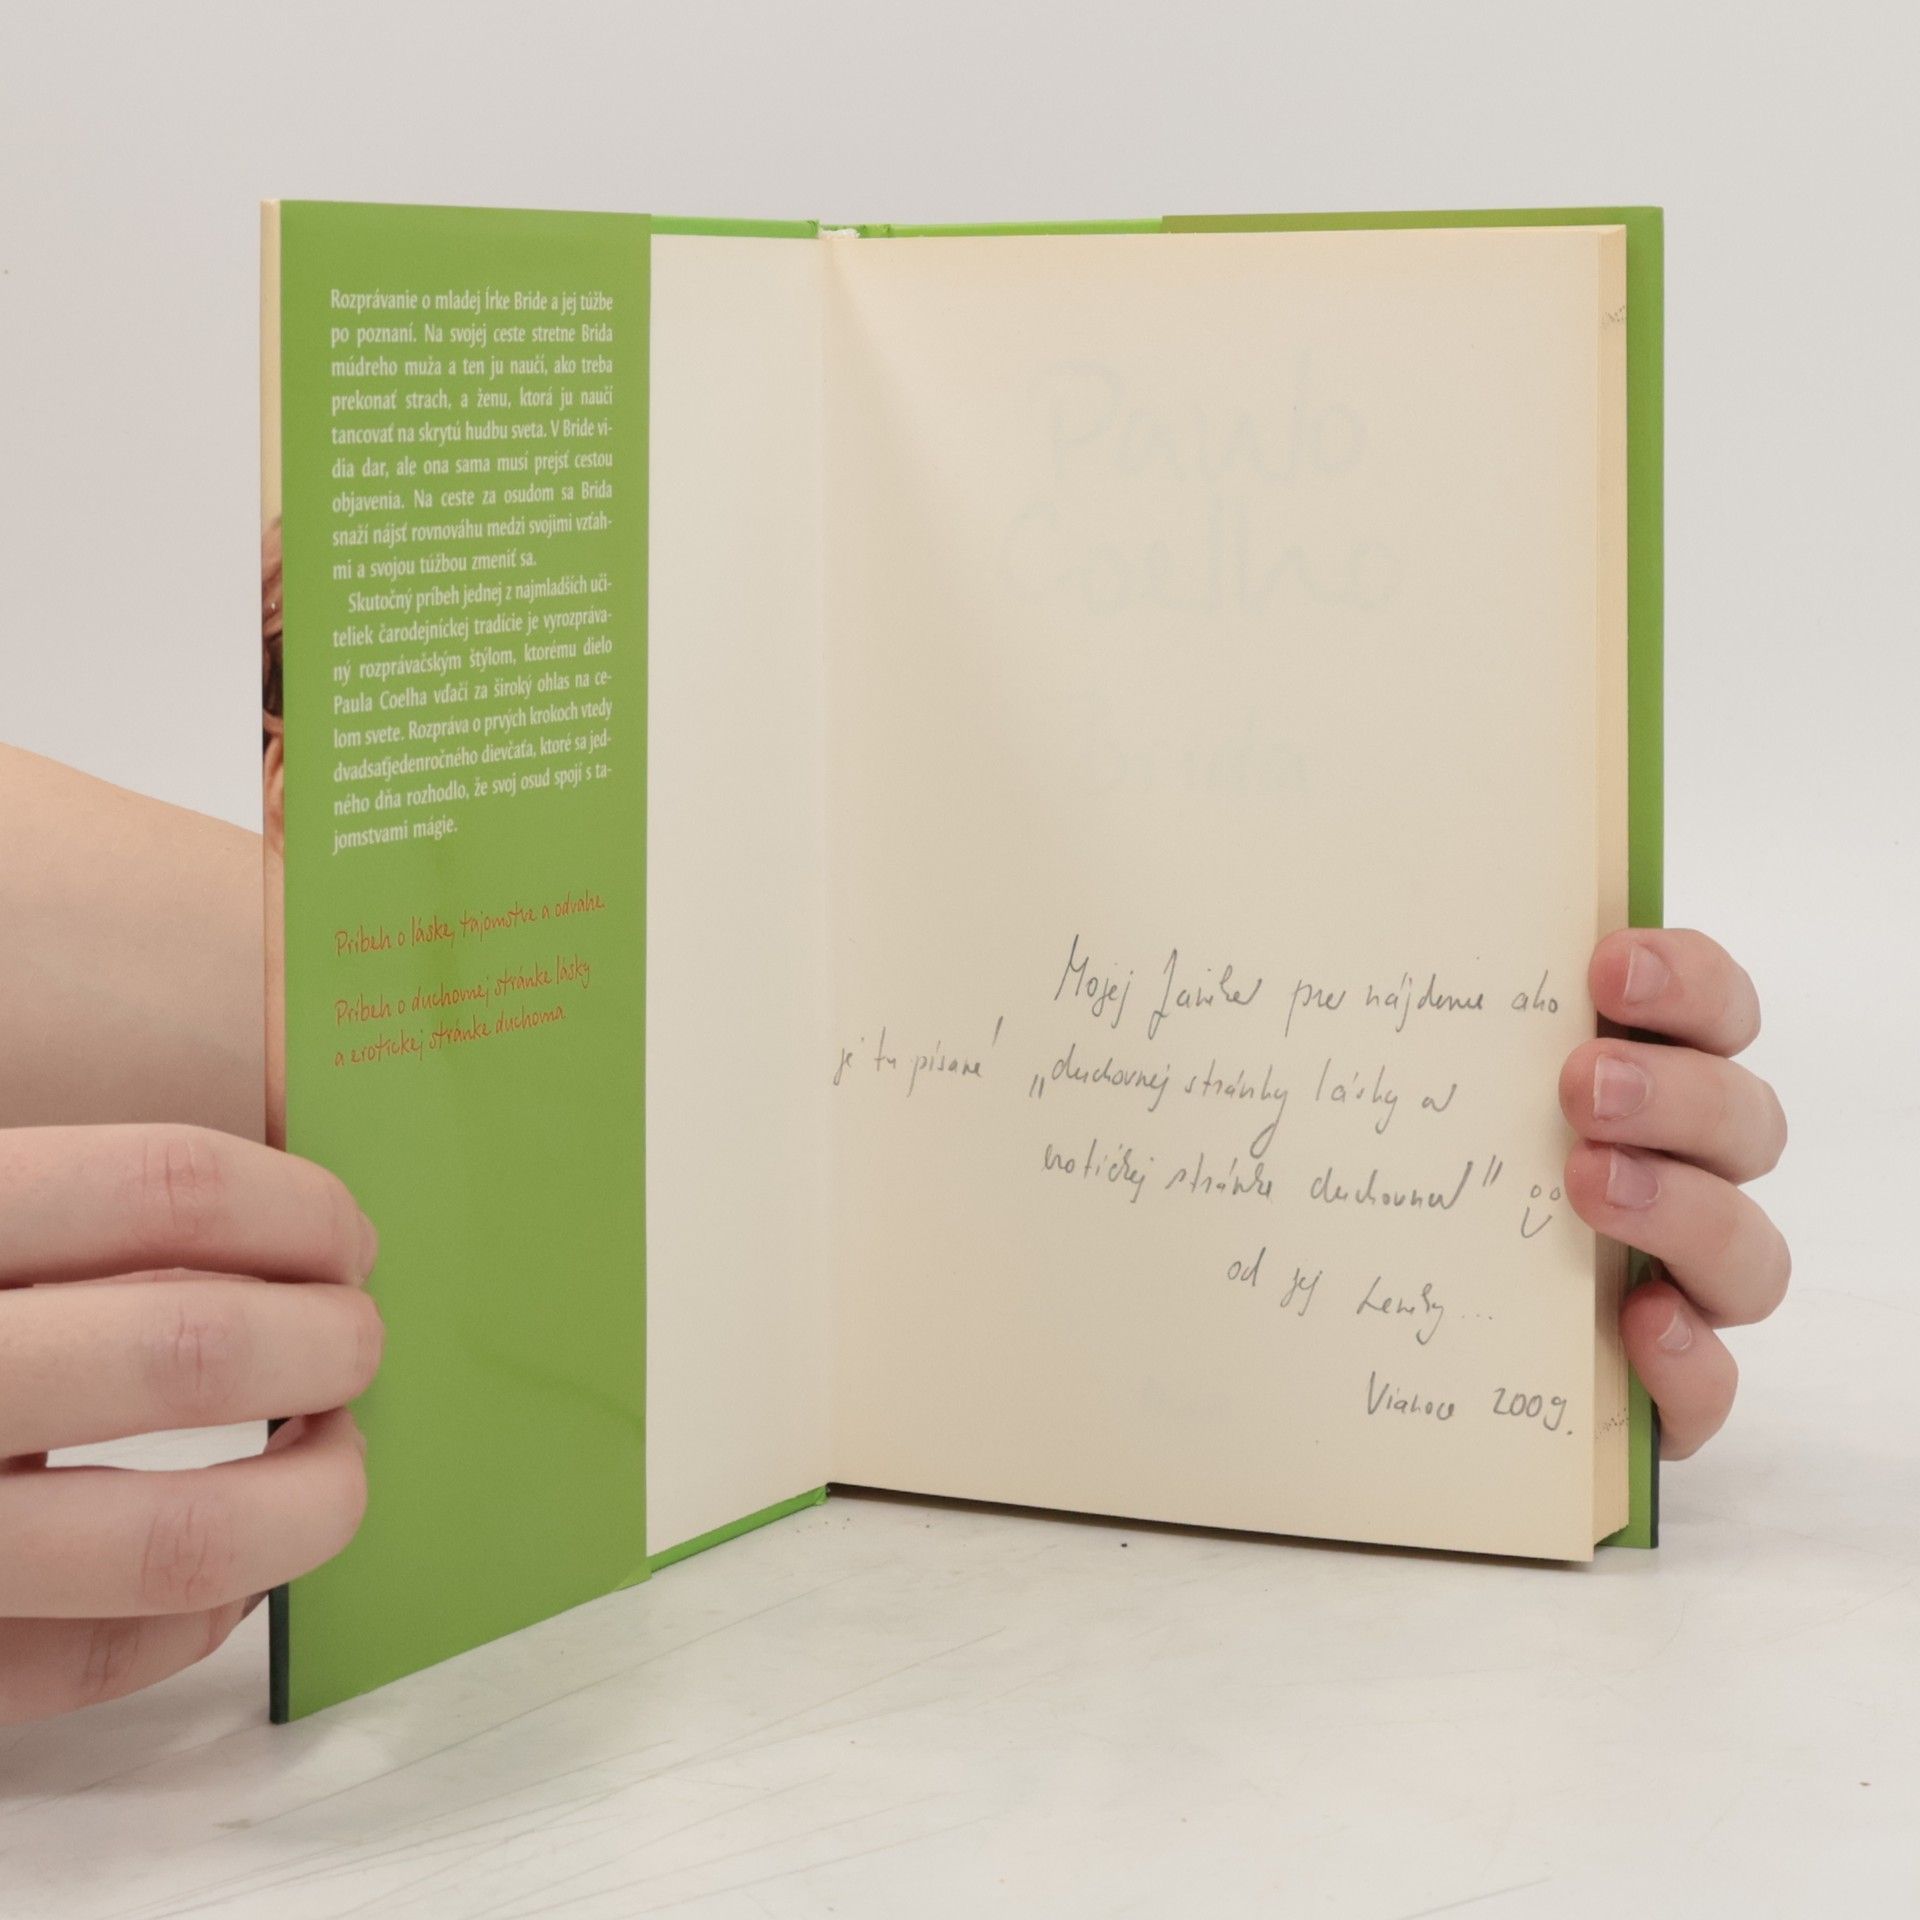 Rozprávanie o mladej Írke Bride a jej túžbe
po poznaní. Na svojej ceste stretne Brida
múdreho muža a ten ju naučí, ako treba
prekonať strach, a ženu, ktorá ju naučí
tancovať na skrytú hudbu sveta. V Bride vi-
dia dar, ale ona sama musí prejsť cestou
objavenia. Na ceste za osudom sa Brida
snaží nájsť rovnováhu medzi svojimi vzťah-
mi a svojou túžbou zmeniť sa.
Skutočný príbeh jednej z najmladších uči-
teliek čarodejníckej tradície je vyrozpráva-
ný rozprávačským štýlom, ktorému dielo
Paula Coelha vďačí za široký ohlas na ce-
lom svete. Rozpráva o prvých krokoch vtedy
dvadsaťjedenročného dievčaťa, ktoré sa jed-
ného dňa rozhodlo, že svoj osud spojí s ta-
jomstvami mágie.
Príbeh o láske, tajomstve a odvahe.
Príbeh o duchovnej stránke lásky
a erotickej stránke duchovna.
Paulo
Coelho
Brida
Mojej Janike pre nájdenie ako
je tu písané „duchovnej stránky lásky a
erotickej stránke duchovna"
od jej Lenky...
Vianoce 2009.